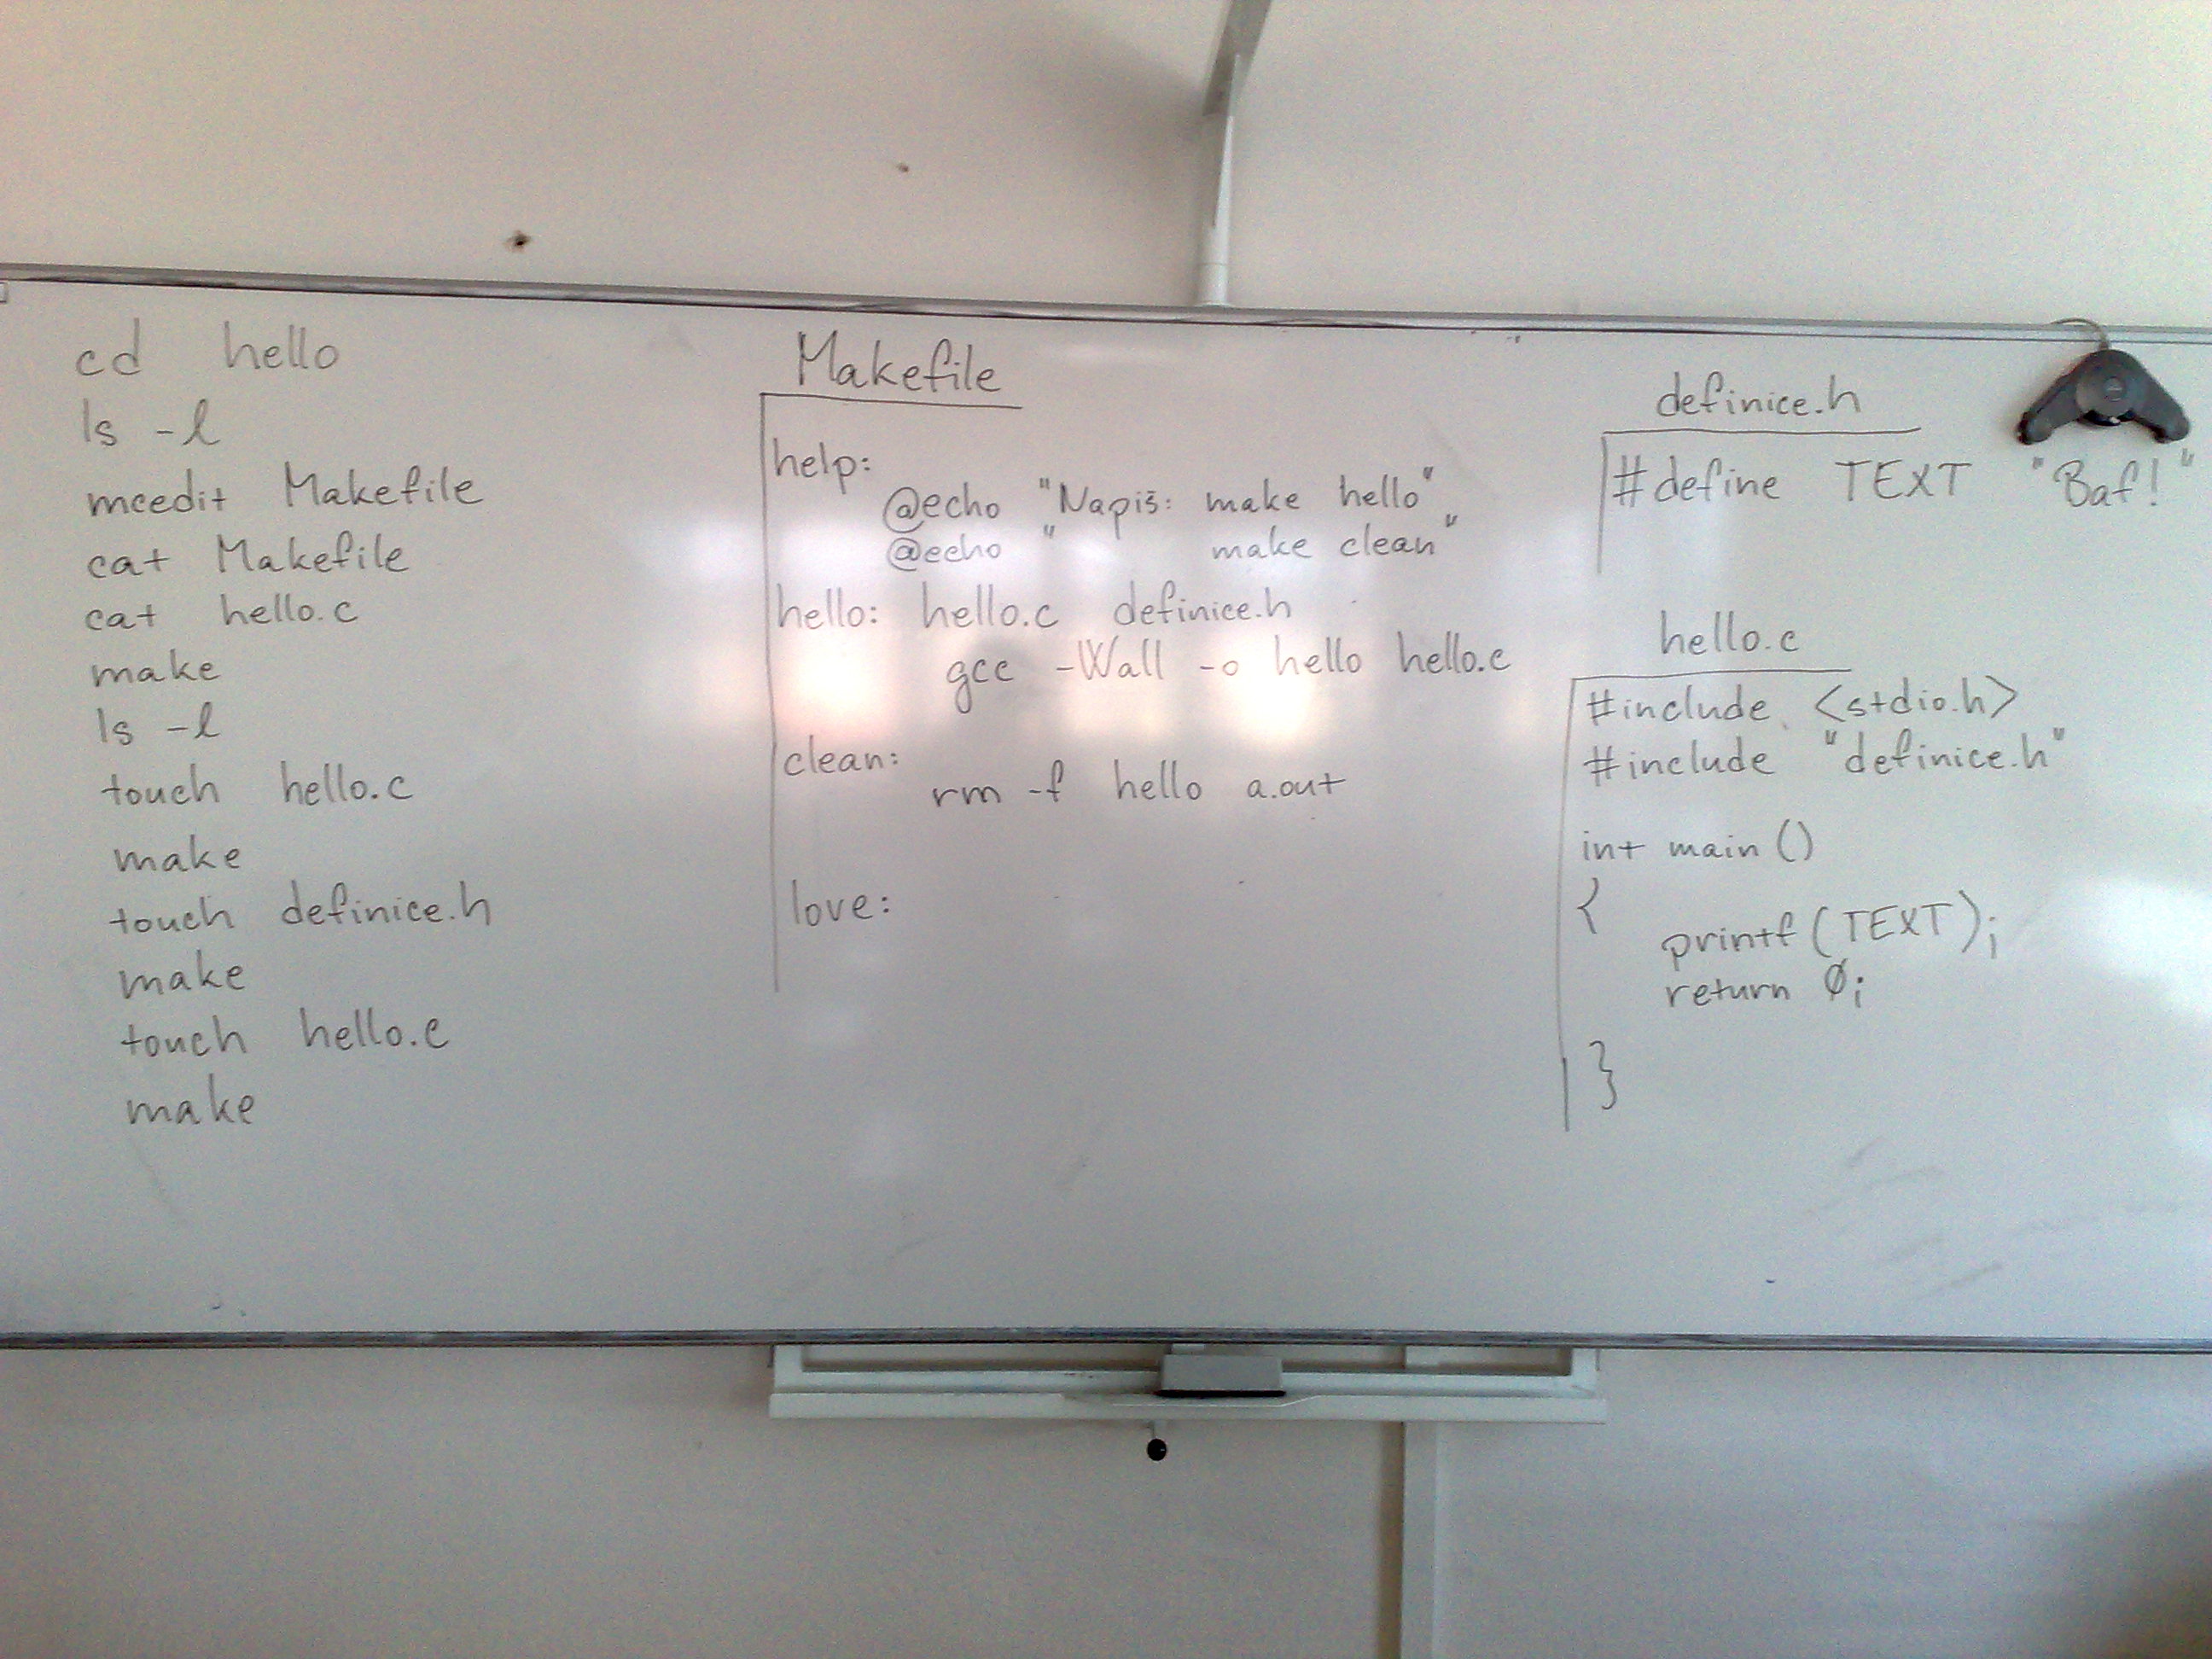 cd hello
ls -l
mcedit Makefile
cat Makefile
cat hello.c
make
ls -l
touch hello.c
make
touch definice.h
make
touch hello.c
make
Makefile
help:
@echo "Napiš: make hello"
@echo " make clean"
hello: hello.c definice.h
gcc -Wall -o hello hello.c
clean:
rm -f hello a.out
love:
definice.h
#define TEXT "Baf!"
hello.c
#include <stdio.h>
#include "definice.h"
int main ()
{
printf (TEXT);
return 0;
}